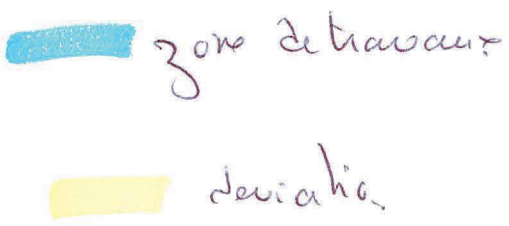 zone de travaux
deviation